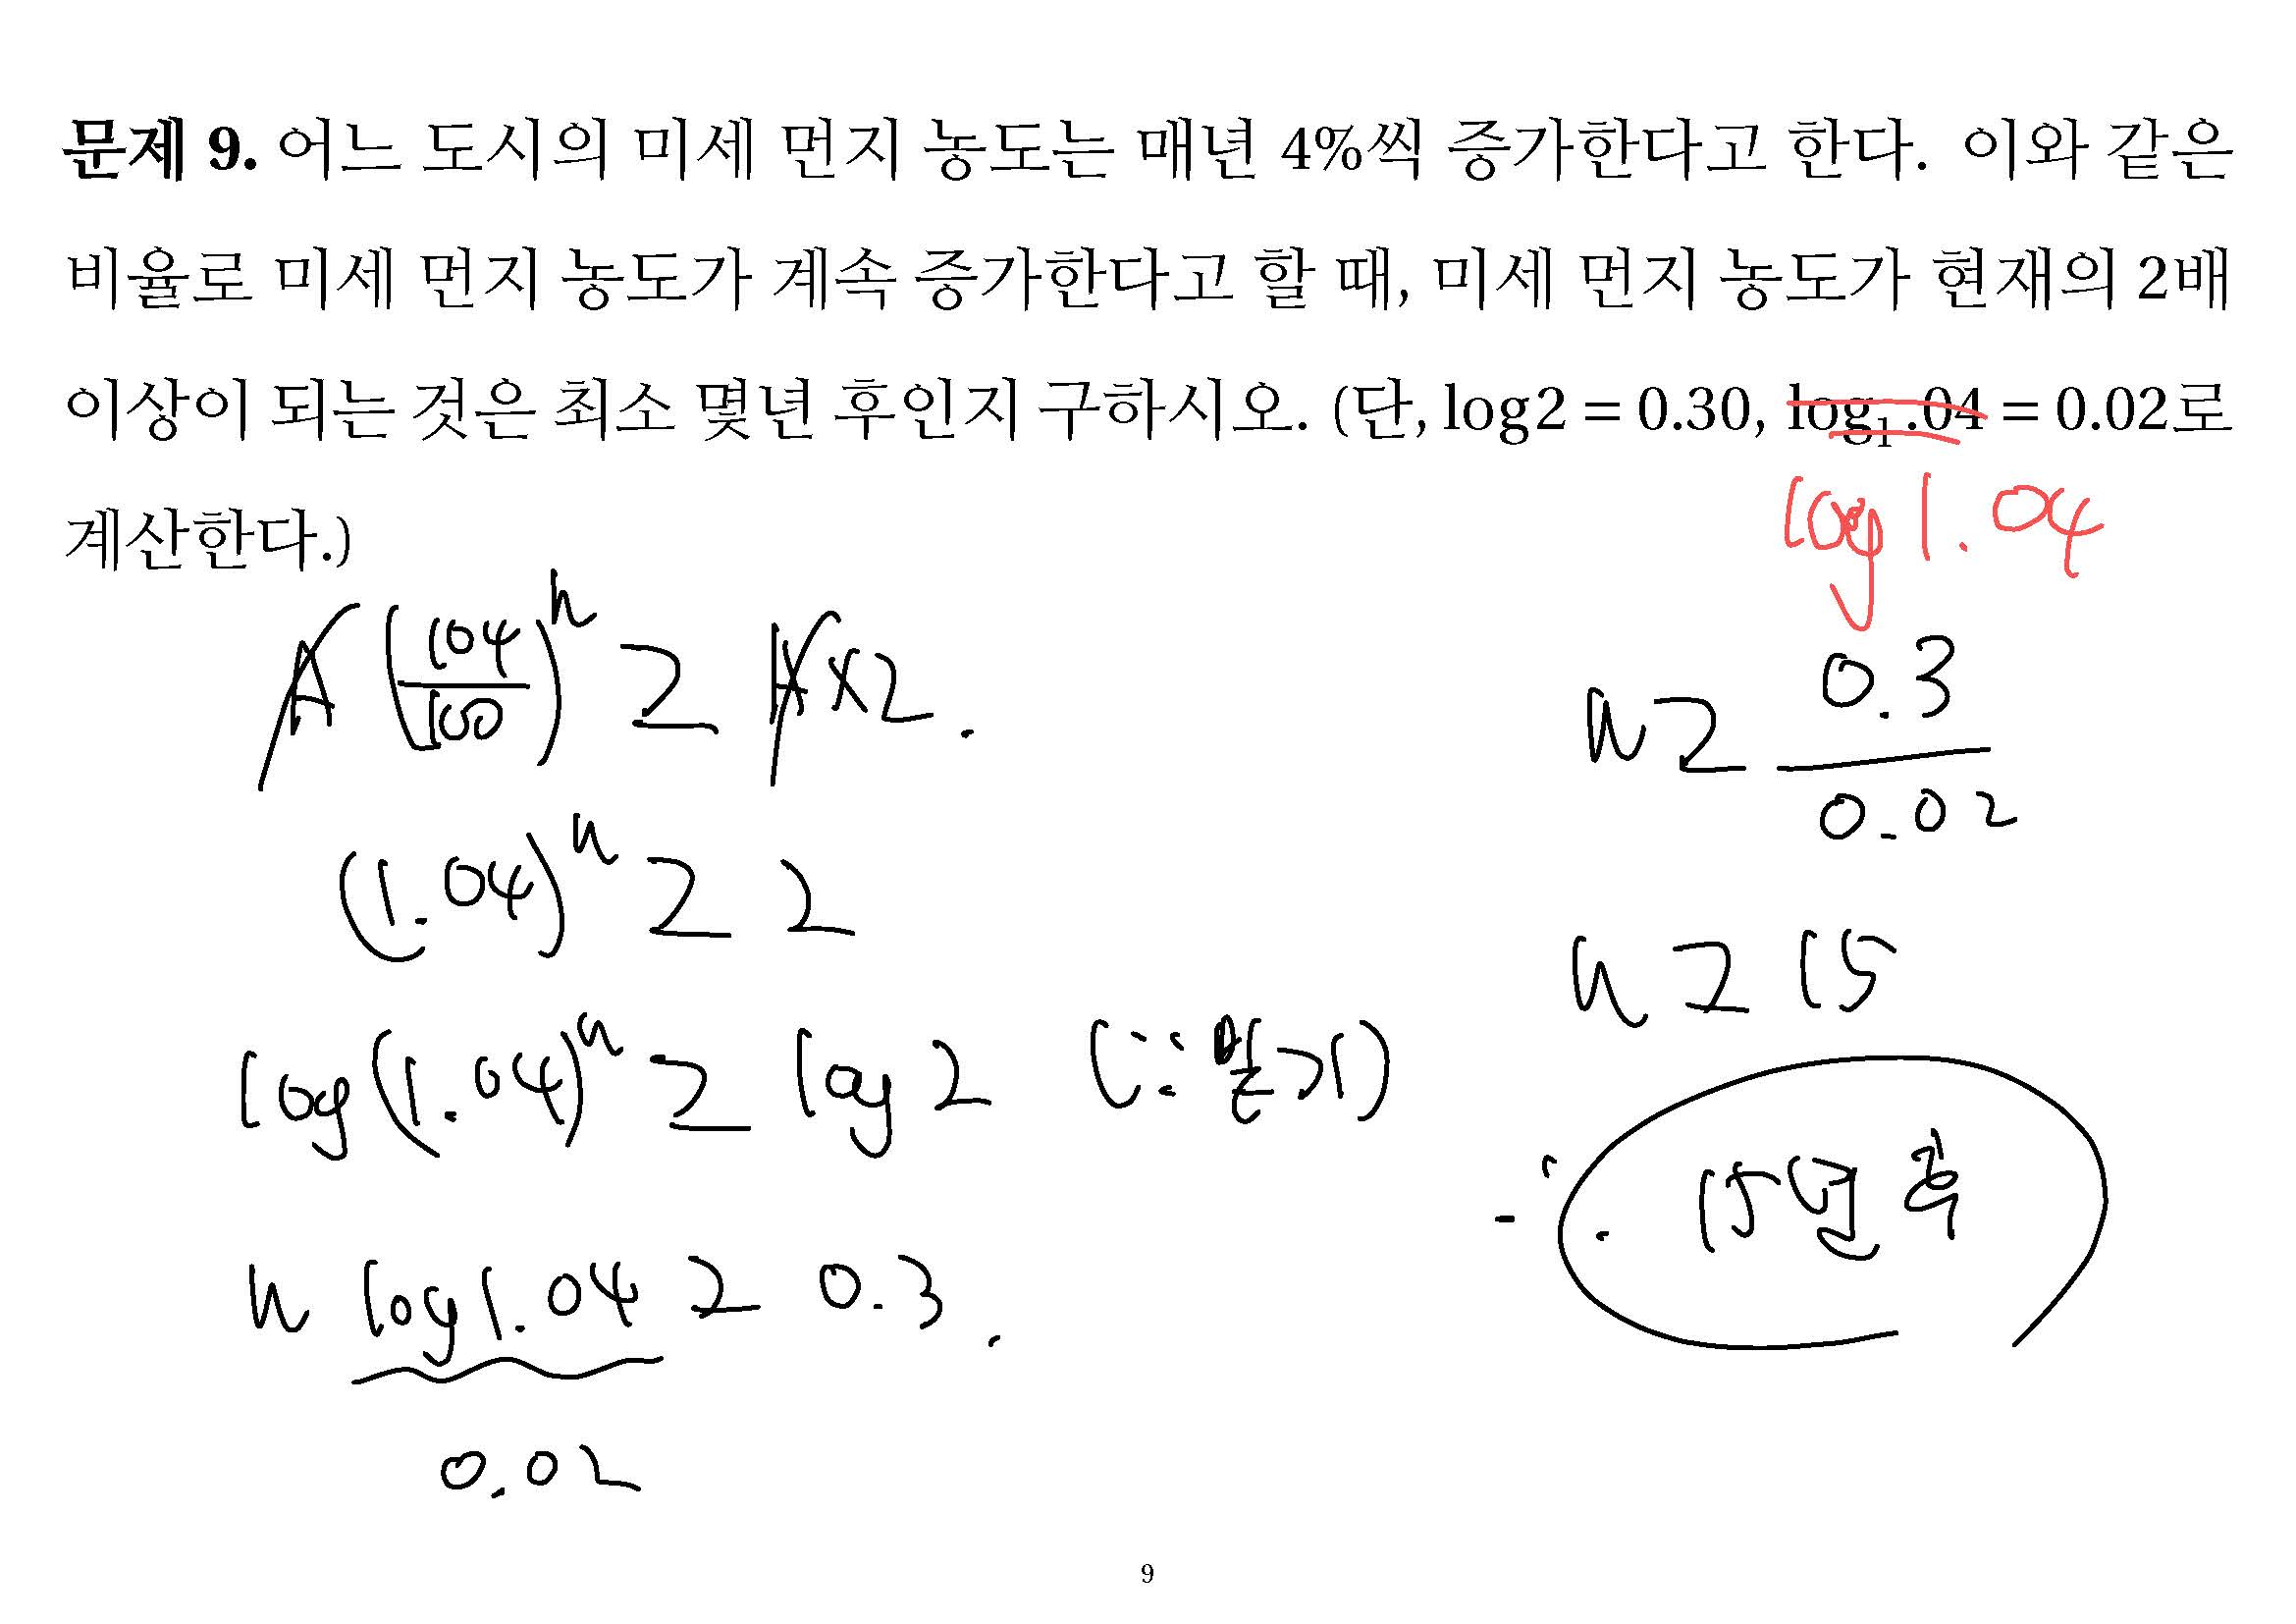 문제 9. 어느 도시의 미세 먼지 농도는 매년 4%씩 증가한다고 한다. 이와 같은
비율로 미세 먼지 농도가 계속 증가한다고 할 때, 미세 먼지 농도가 현재의 2배
이상이 되는 것은 최소 몇년 후인지 구하시오. (단, log2 = 0.30, log₁.04 = 0.02로
계산한다.)
log 1.04
A(104/100)^n ≥ A×2.
(1.04)^n ≥ 2
log(1.04)^n ≥ log 2 (∵ 밑>1)
n log1.04 ≥ 0.3.
0.02
n ≥ 0.3/0.02
n ≥ 15
∴ 15년 후
9